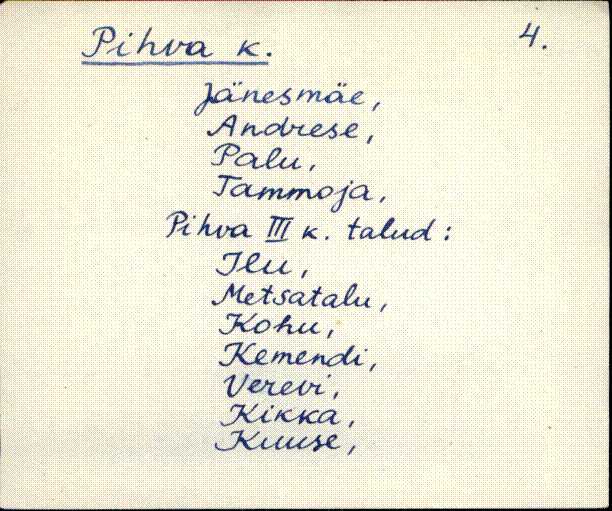 Pihva k. 4.
Jänesmäe,
Andrese,
Palu,
Tammoja,
Pihva III k. talud:
Ilu,
Metsatalu,
Kohu,
Kemendi,
Verevi,
Kikka,
Kuuse,